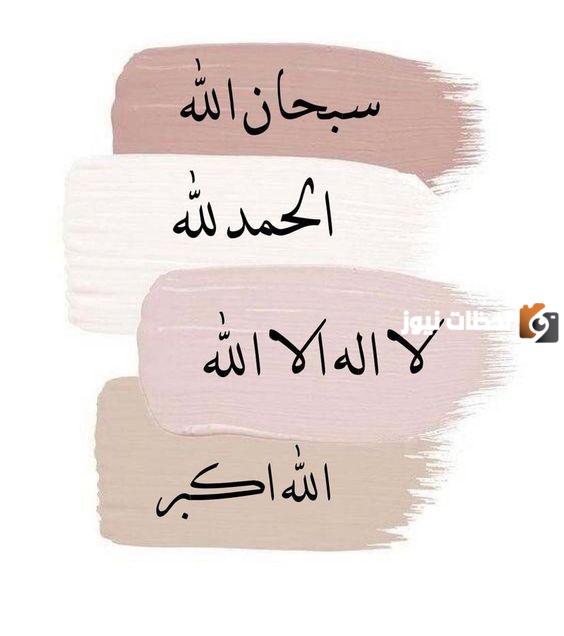 سبحان الله
الحمد لله
لا اله الا الله
لحظات نيوز
الله اكبر